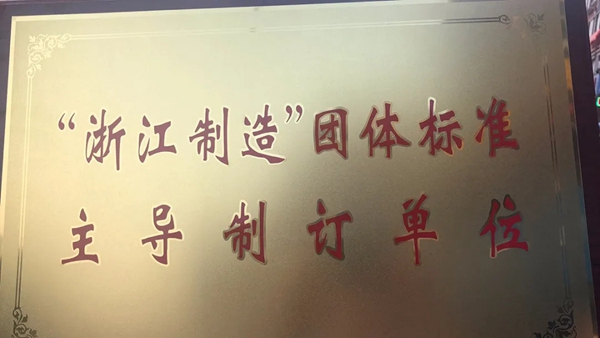 “浙江制造”团体标准
主导制订单位